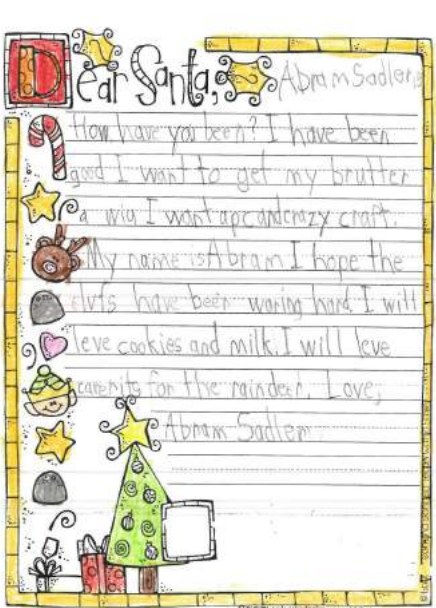 Dear Santa, Abram Sadler
How have you been? I have been
good I want to get my brutter
a wiu I want a pc and crazy craft.
My name is Abram I hope the
elvfs have been waring hard. I will
leve cookies and milk. I will leve
for the raindeer. Love,
Abram Sadler